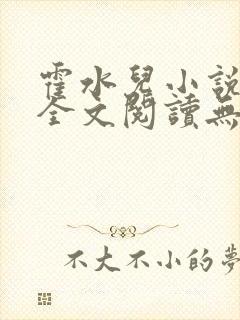 霍水兒小說
全文閱讀無
不大不小的夢